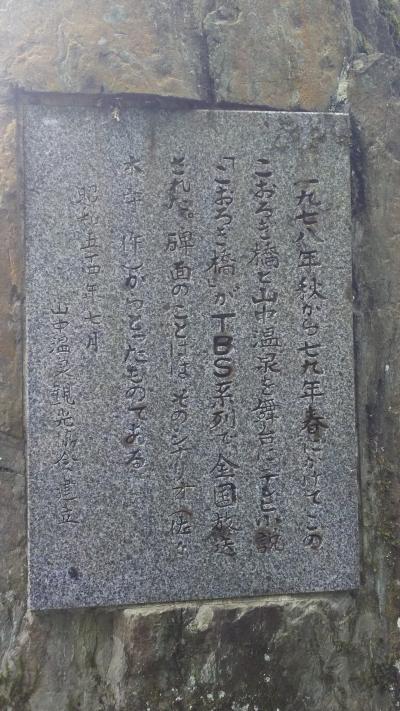 一九七八年秋から七九年春にかけてこの
こおろぎ橋と山中温泉を舞台にテレビ小説
「こおろぎ橋」がTBS系列で全国放送
された。碑面のことばはそのシナリオ(佐々
木守 作)からとったものである
昭和五十四年七月
山中温泉観光協会建立